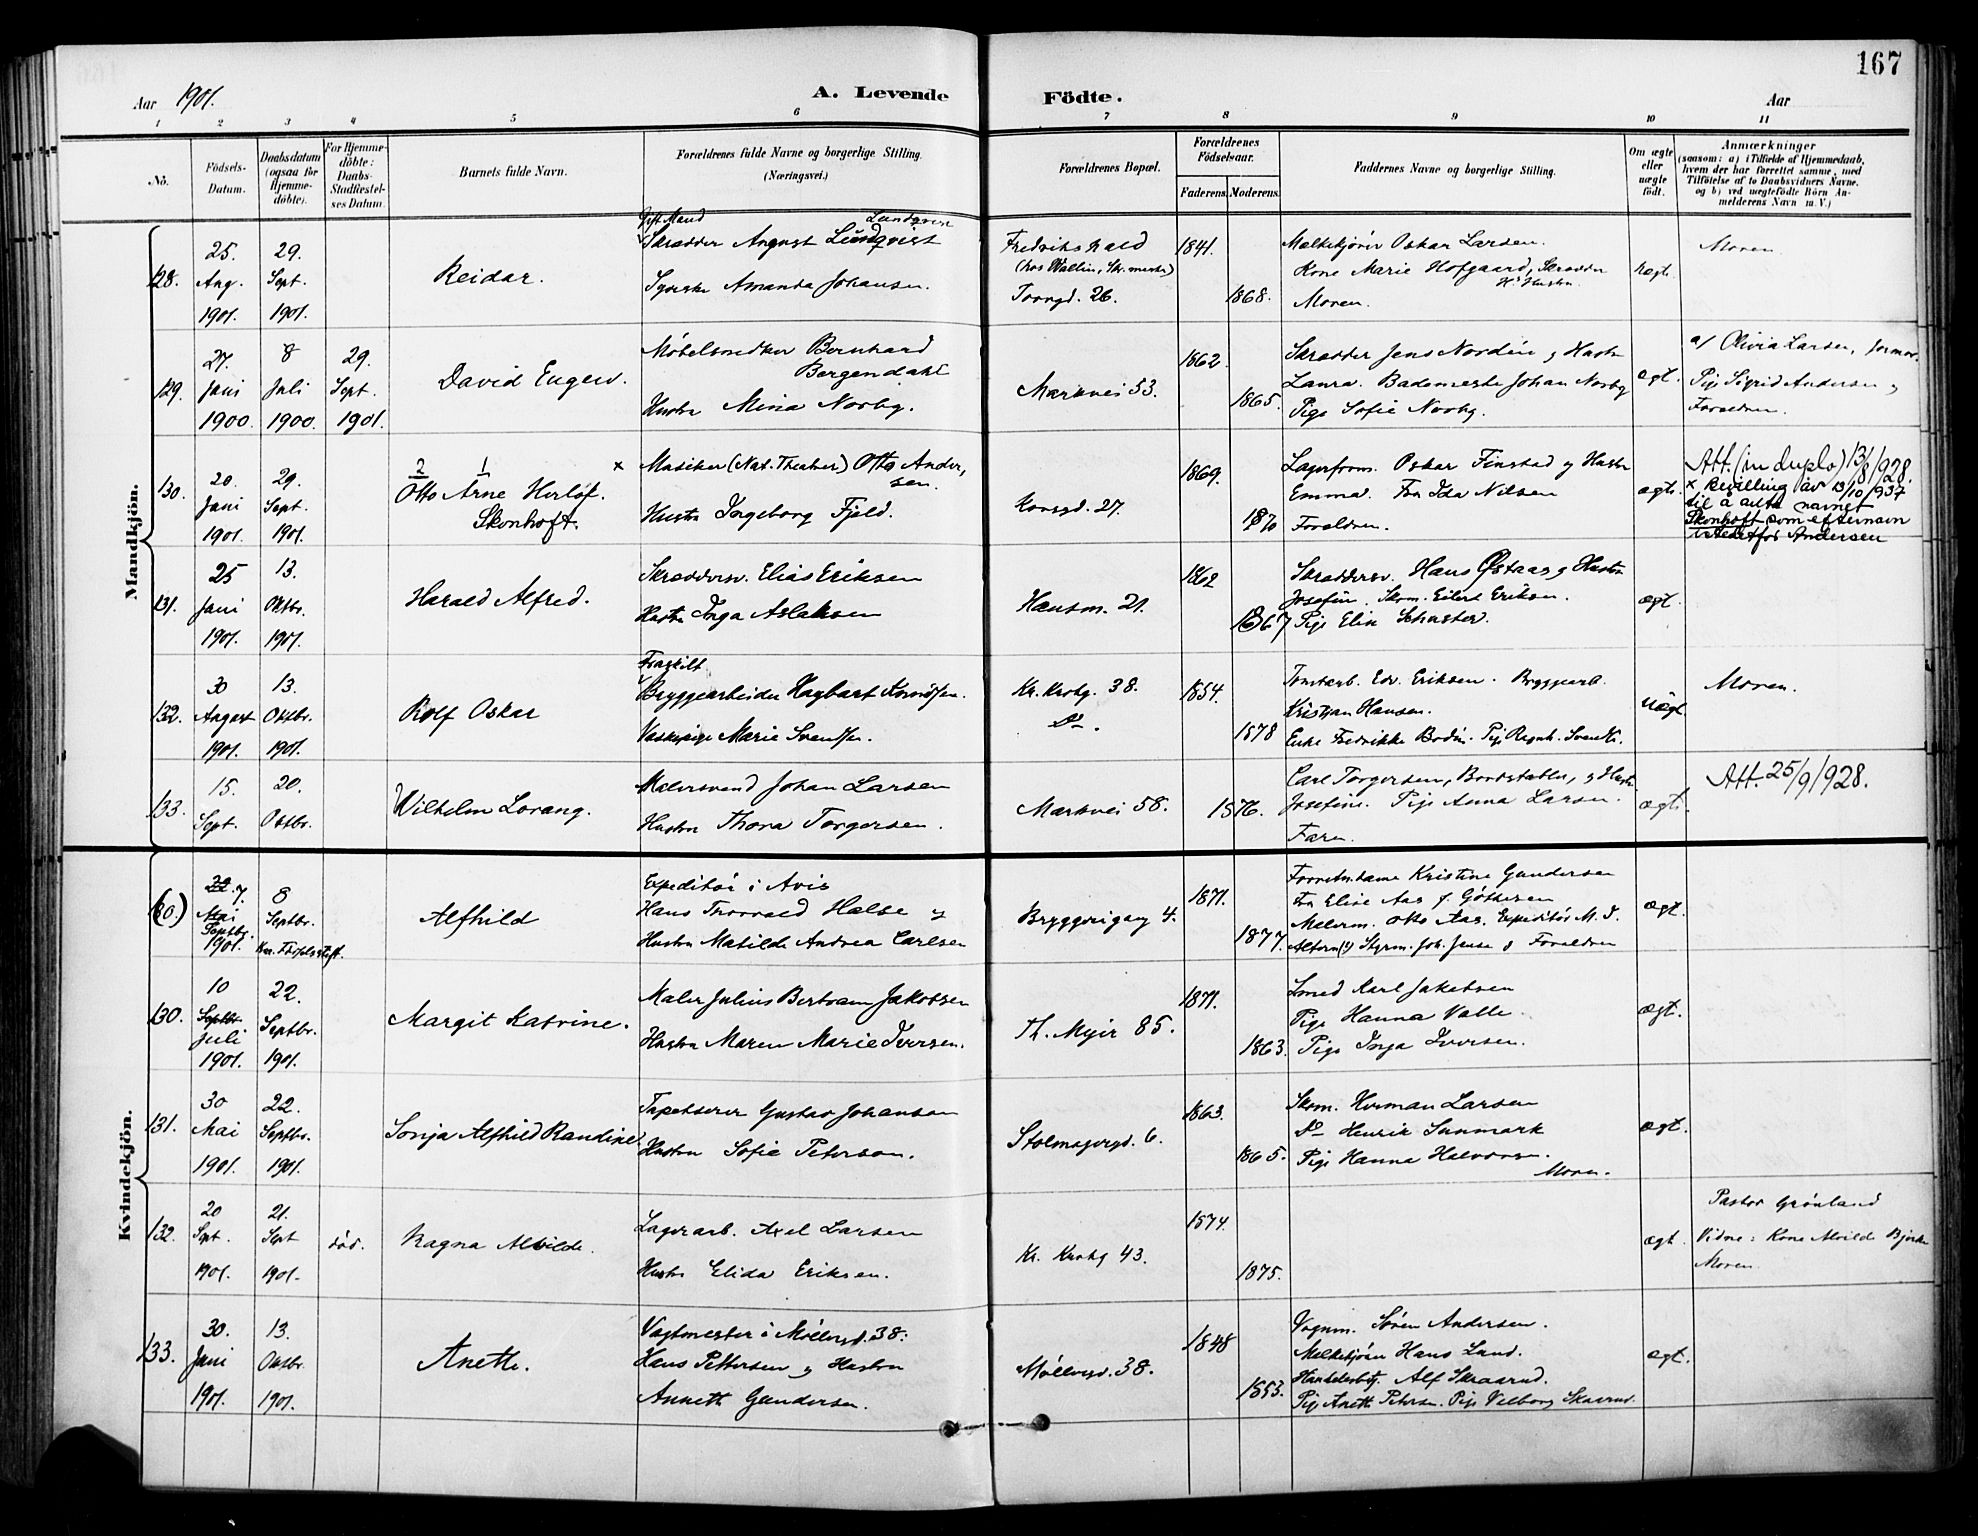 167
Aar 1901.
A. Levende Födte.
Aar
1 2 3 4 5 6 7 8 9 10 11
No.
Födsels-Datum.
Daabsdatum (ogsaa for Hjemme-döbte).
For Hjemme-döbte: Daabs-Stadfæstel-ses Datum.
Barnets fulde Navn.
Forældrenes fulde Navne og borgerlige Stilling.
(Næringsvei.)
Forældrenes Bopæl.
Forældrenes Födselsaar.
Faderens. Moderens.
Faddernes Navne og borgerlige Stilling.
Om ægte eller uægte födt.
Anmærkninger
(saasom: a) i Tilfælde af Hjemmedaab,
hvem der har forrettet samme, med
Tilföielse af to Daabsvidners Navne,
og b) ved uægtefödte Börn An-
melderens Navn m. V.)
Mandkjön.
128.
25. Aug. 1901.
29. Sept. 1901.
Reidar.
Gift Mand Lundqvist
Skrædder August Lundqvist
Syerske Amanda Johansen.
Fredrikshald
(hos Wallin, Sk.mester)
Torvgd. 26.
1841.
1868.
Mælkekjører Oskar Larsen.
Kone Marie Hofgaard, Skrædder
H's Hustru
Moren.
uægt.
Moren.
129.
27. Juni 1900.
8 Juli 1900.
29. Sept. 1901.
David Eugen.
Møbelsnedker Bernhard
Bergendahl
Hustru Mina Norby.
Markvei 53.
1862
1865.
Skrædder Jens Nordén og Hustru
Laura. Bademester Johan Norby
Pige Sofie Norby.
ægt.
a/ Olivia Larsen, Jormor.
Pige Sigrid Andersen og
Forældren.
130.
20. Juni 1901.
29. Sept. 1901.
2 1 x
Otto Arne Herlöf.
Skonhoft.
Musiker (Nat. Theatner) Otto Ander,
sen.
Hustru Ingeborg Fjeld.
Korsgd. 27.
1869.
1870
Lagerform. Oskar Finstad og Hustru
Emma. Fru Ida Nilsen
Forældren.
ægt.
Att. (in duplo) 13/8/1928.
x Bevilling av 13/10/937
til å anta navnet
Skonhoft som efternavn
istedetfor Andersen
131.
25 Juni 1901.
13. Oktbr. 1901.
Harald Alfred.
Skræddersv. Elias Eriksen
Hustru Inga Aslaksen
Hausm. 21.
1862
1867
Skræddersv. Hans Østaas og Hustru
Josefine. Skom. Eilert Eriksen.
Pige Elin Schuster.
ægt.
132.
30 August 1901.
13. Oktbr. 1901.
Rolf Oskar
Fraskilt
Bryggearbeider Hagbart Arnößen.
Vaskepige Marie Svendsen.
Kr. Krohg. 38.
Do.
1854.
1878
Edv. Eriksen. Bryggearb.
Kristian Hansen.
Enke Fredrikke Bodin. Pige Ragnh. Svendsen.
uægt.
Moren.
133.
15. Sept.
20. Oktbr.
Wilhelm Lorang.
Malersvend Johan Larsen
Hustru Thora Torgersen.
Markvei 58.
1876.
Carl Torgersen, Bordstabler, og Hustru
Josefine. Pige Anna Larsen.
Faren
ægt.
Att. 25/9/1928.
Kvindekjön.
7. Mai Septbr. 1901.
8 Septbr.
Alfhild
Expeditör i Avis
Hans Thorvald Halse og
Hustru Matilde Andrea Carlsen
Bryggerigang 4.
1871.
1877.
Kristine Gundersen
Fru Eline Aas f. Göthesen
Malerm. Otto Aas. Expeditör M. J.
Styrm. Joh. Jensen & Forældren
ægt.
130.
10 Septbr. Juli 1901.
22. Septbr. 1901.
Margit Katrine.
Maler Julius Bertram Jakobsen
Hustru Maren Marie Iversen.
Th. Meyer 85.
1871.
1863.
Smed Karl Jakobsen
Pige Hanna Valle.
Pige Inga Iversen.
ægt.
131.
30 Mai 1901.
22. Septbr. 1901.
Sonja Alfhild Randine.
Tapetserer Gustav Johansen
Hustru Sofie Petersen.
Stolmagergd. 6.
1863.
1865.
Skom. Herman Larsen
Do Henrik Sunmark
Pige Hanna Halvorsen.
Moren.
ægt.
132.
20 Sept. 1901.
21. Sept 1901.
död.
Ragna Alvilde.
Lagerarb. Axel Larsen
Hustru Elida Eriksen.
Kr. Krohg 43.
1874.
1875.
ægt.
Pastor Grönland
Vidne: Kone Alvilde Bjerke
Moren.
133.
30. Juni 1901.
13. Oktbr. 1901.
Anette.
Vagtmester i Möllergd. 38:
Hans Pettersen og Hustru
Annette Gundersen.
Möllergd. 38.
1848
1853.
Vognm. Sören Andersen.
Melkekjörer Hans Lund.
Handelsbetj. Alf Skaarud.
Pige Anette Petersen. Pige Velborg Skaarud.
ægt.